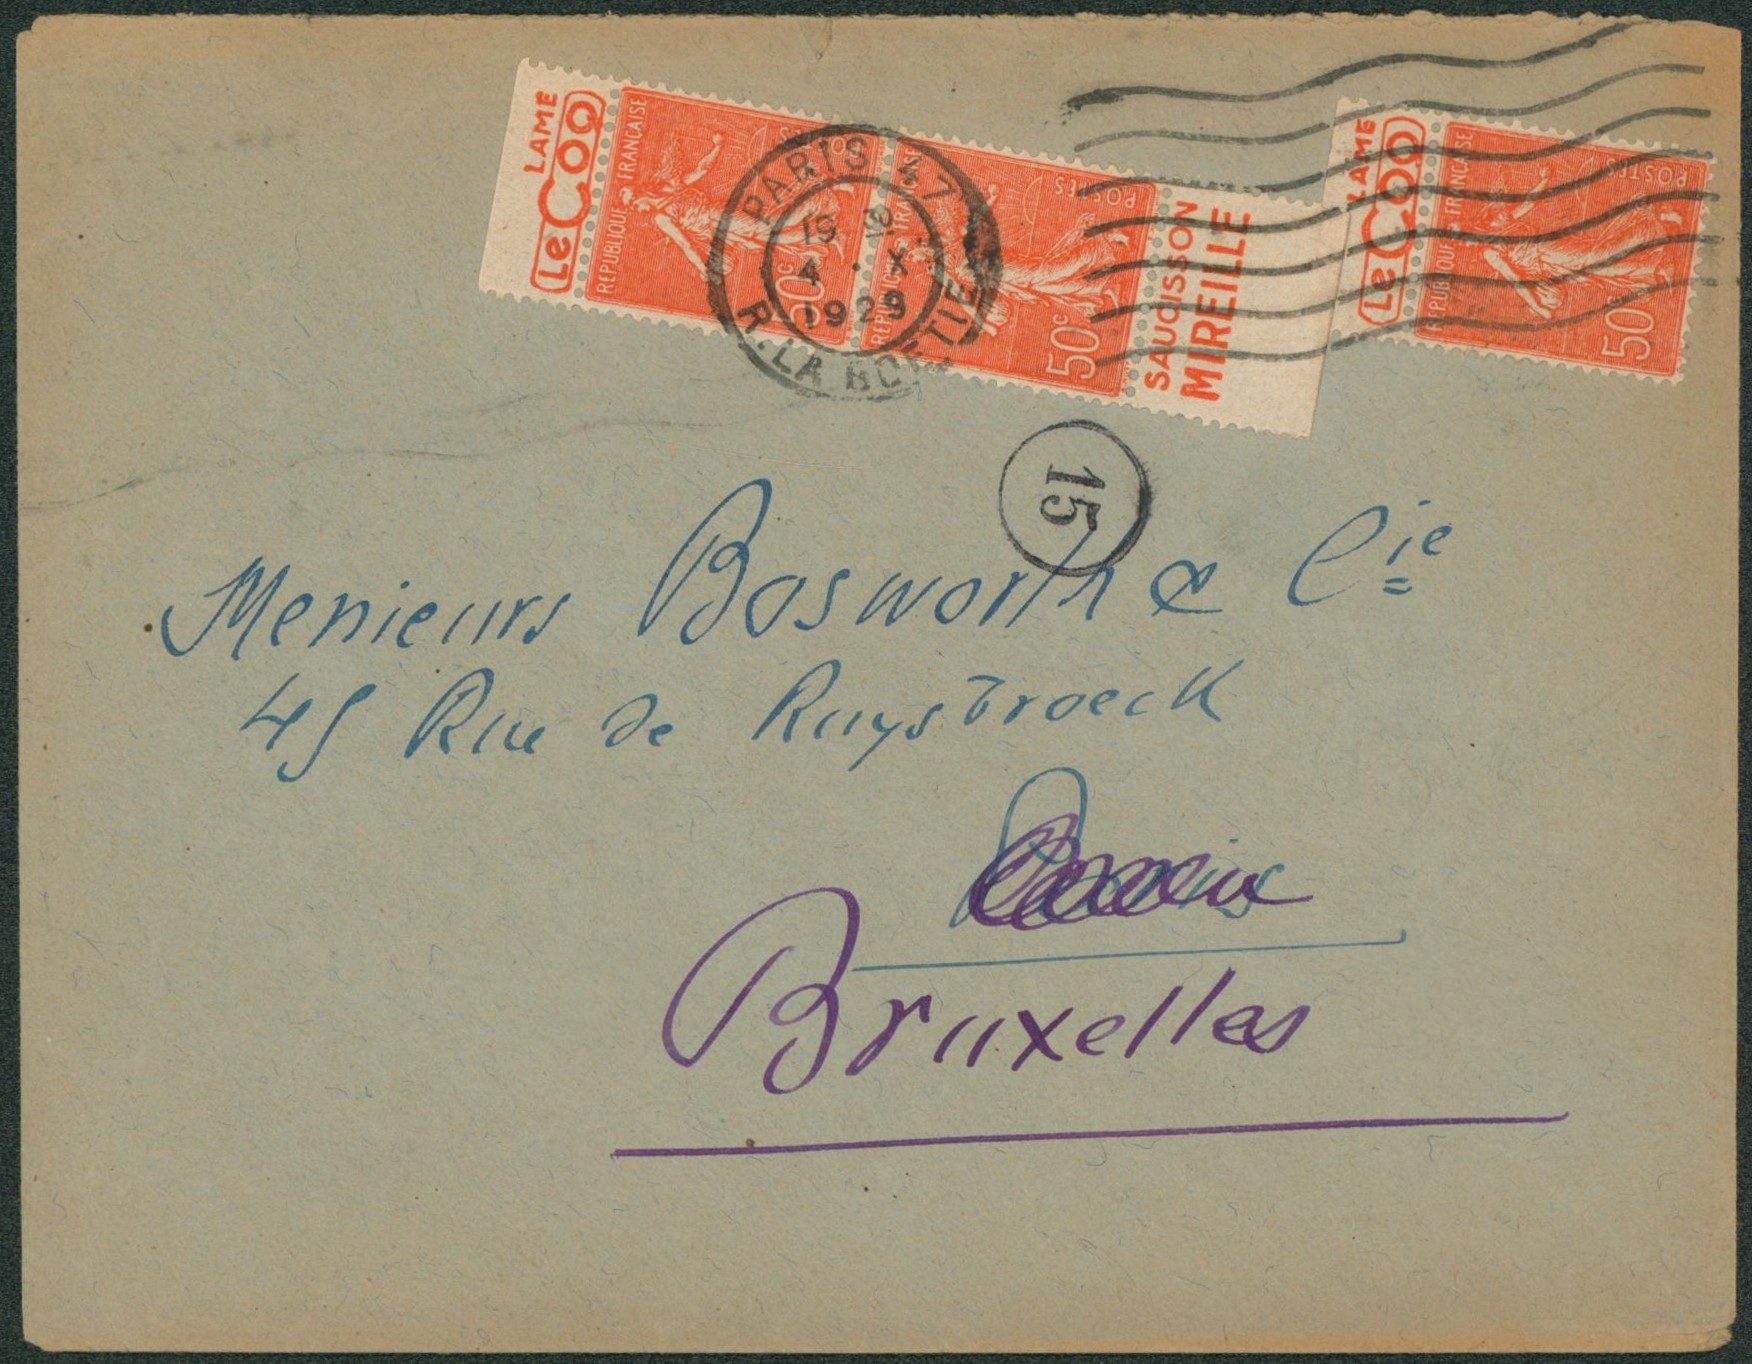 LAME
Le COQ
REPUBLIQUE FRANCAISE
POSTES
50c
REPUBLIQUE FRANCAISE
POSTES
50c
SAUCISSON
MIREILLE
LAME
Le COQ
REPUBLIQUE FRANCAISE
POSTES
50c
PARIS 47
19 30
4 · X
1929
R. LA BOETIE
15
Messieurs Bosworth & Cie
45 Rue de Ruysbroeck
Paris
Bruxelles